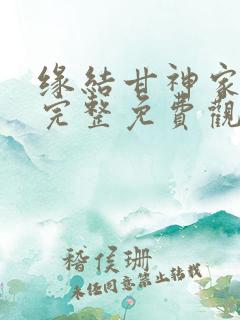 缘結甘神家
完整免費觀
稽侯珊
未经同意禁止转载